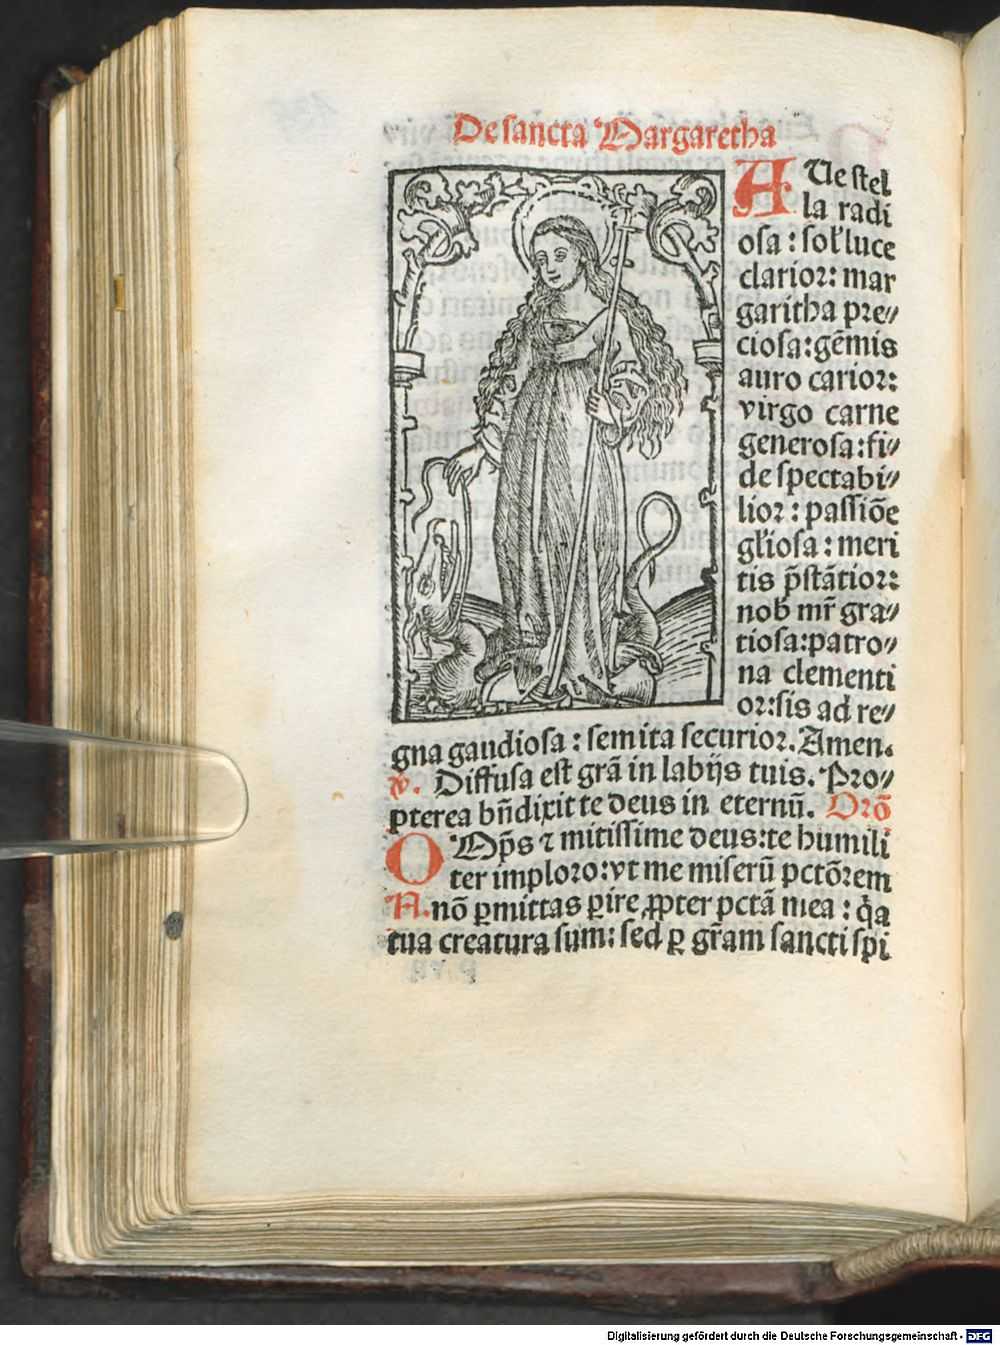 De sancta Margaretha
AUe stel
la radi
osa : sol̄ luce
clarior: mar
garitha pre⸗
ciosa:gēmis
auro carior:
virgo carne
generosa:fi⸗
de spectabi⸗
lior : passiōe
gl̄iosa : meri
tis p̄stātior:
nob mr̄ gra⸗
tiosa:patro⸗
na clementi
or:sis ad re⸗
gna gaudiosa : semita securior. Amen.
℣. Diffusa est grā in labijs tuis. Pro⸗
pterea bn̄dixit te deus in eternū. Orō
O Om̄ps ⁊ mitissime deus:te humili
ter imploro:vt me miserū pctōrem
N. nō ꝑmittas ꝑire ꝓpter pctā mea : q̄a
tua creatura sum: sed ꝑ gr̄am sancti spi
Digitalisierung gefördert durch die Deutsche Forschungsgemeinschaft - DFG